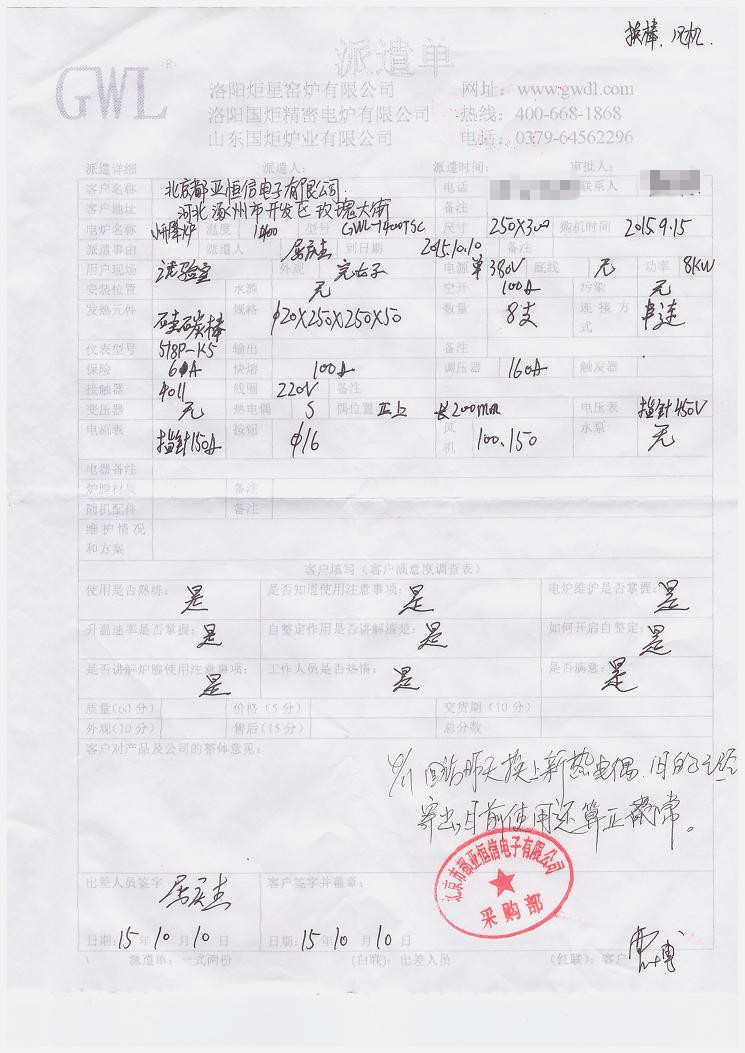 换棒、风机.
派遣单
GWL®
洛阳炬星窑炉有限公司 网址：www.gwdl.com
洛阳国炬精密电炉有限公司 热线：400-668-1868
山东国炬炉业有限公司 电话：0379-64562296
派遣详细 派遣人： 派遣时间： 审批人：
客户名称 北京都亚恒信电子有限公司. 电话 联系人
客户地址 河北涿州市开发区玫瑰大街 备注
电炉名称 升降炉 温度 1400 型号 GWL-1400TSC 尺寸 250X300 购机时间 2015.9.15
派遣事由 派遣人 到日期 2015.10.10 备注
用户现场 试验室 外观 完右子 电源 单380V 底线 无 功率 8KW
安装位置 水源 无 空开 100A 污染 无
发热元件 硅碳棒 规格 φ20X250X250X50 数量 8支 连接方式 串连
仪表型号 518P-K5 输出 备注
保险 6A 快熔 100A 调压器 160A 触发器
接触器 4011 线圈 220V 备注
变压器 无 热电偶 S 偶位置 正上 长200mm 电压表 指针450V
电流表 指针150A 按钮 φ16 风机 100.150 水泵 无
电器备注
炉膛材质 备注
随机配件 备注
维护情况和方案
客户填写（客户成意度调查表）
使用是否熟练： 是 是否知道使用注意事项： 是 电炉维护是否掌握： 是
升温速率是否掌握： 是 自整定作用是否讲解清楚： 是 如何开启自整定： 是
是否讲解炉膛使用注意事项： 是 工作人员是否热情： 是 是否满意： 是
质量(60分) 价格(5分) 交货期(10分)
外观(10分) 售后(15分) 总分数
客户对产品及公司的整体意见：
4/11 回访昨天换上新热电偶.旧的已经
寄出,目前使用还算正常。
北京市都亚恒信电子有限公司
采购部
出差人员签字 客户签字并盖章：
日期：15年10月10日 日期：15年10月10日
派遣单：一式两份 (白联)：出差人员 (红联)：客户